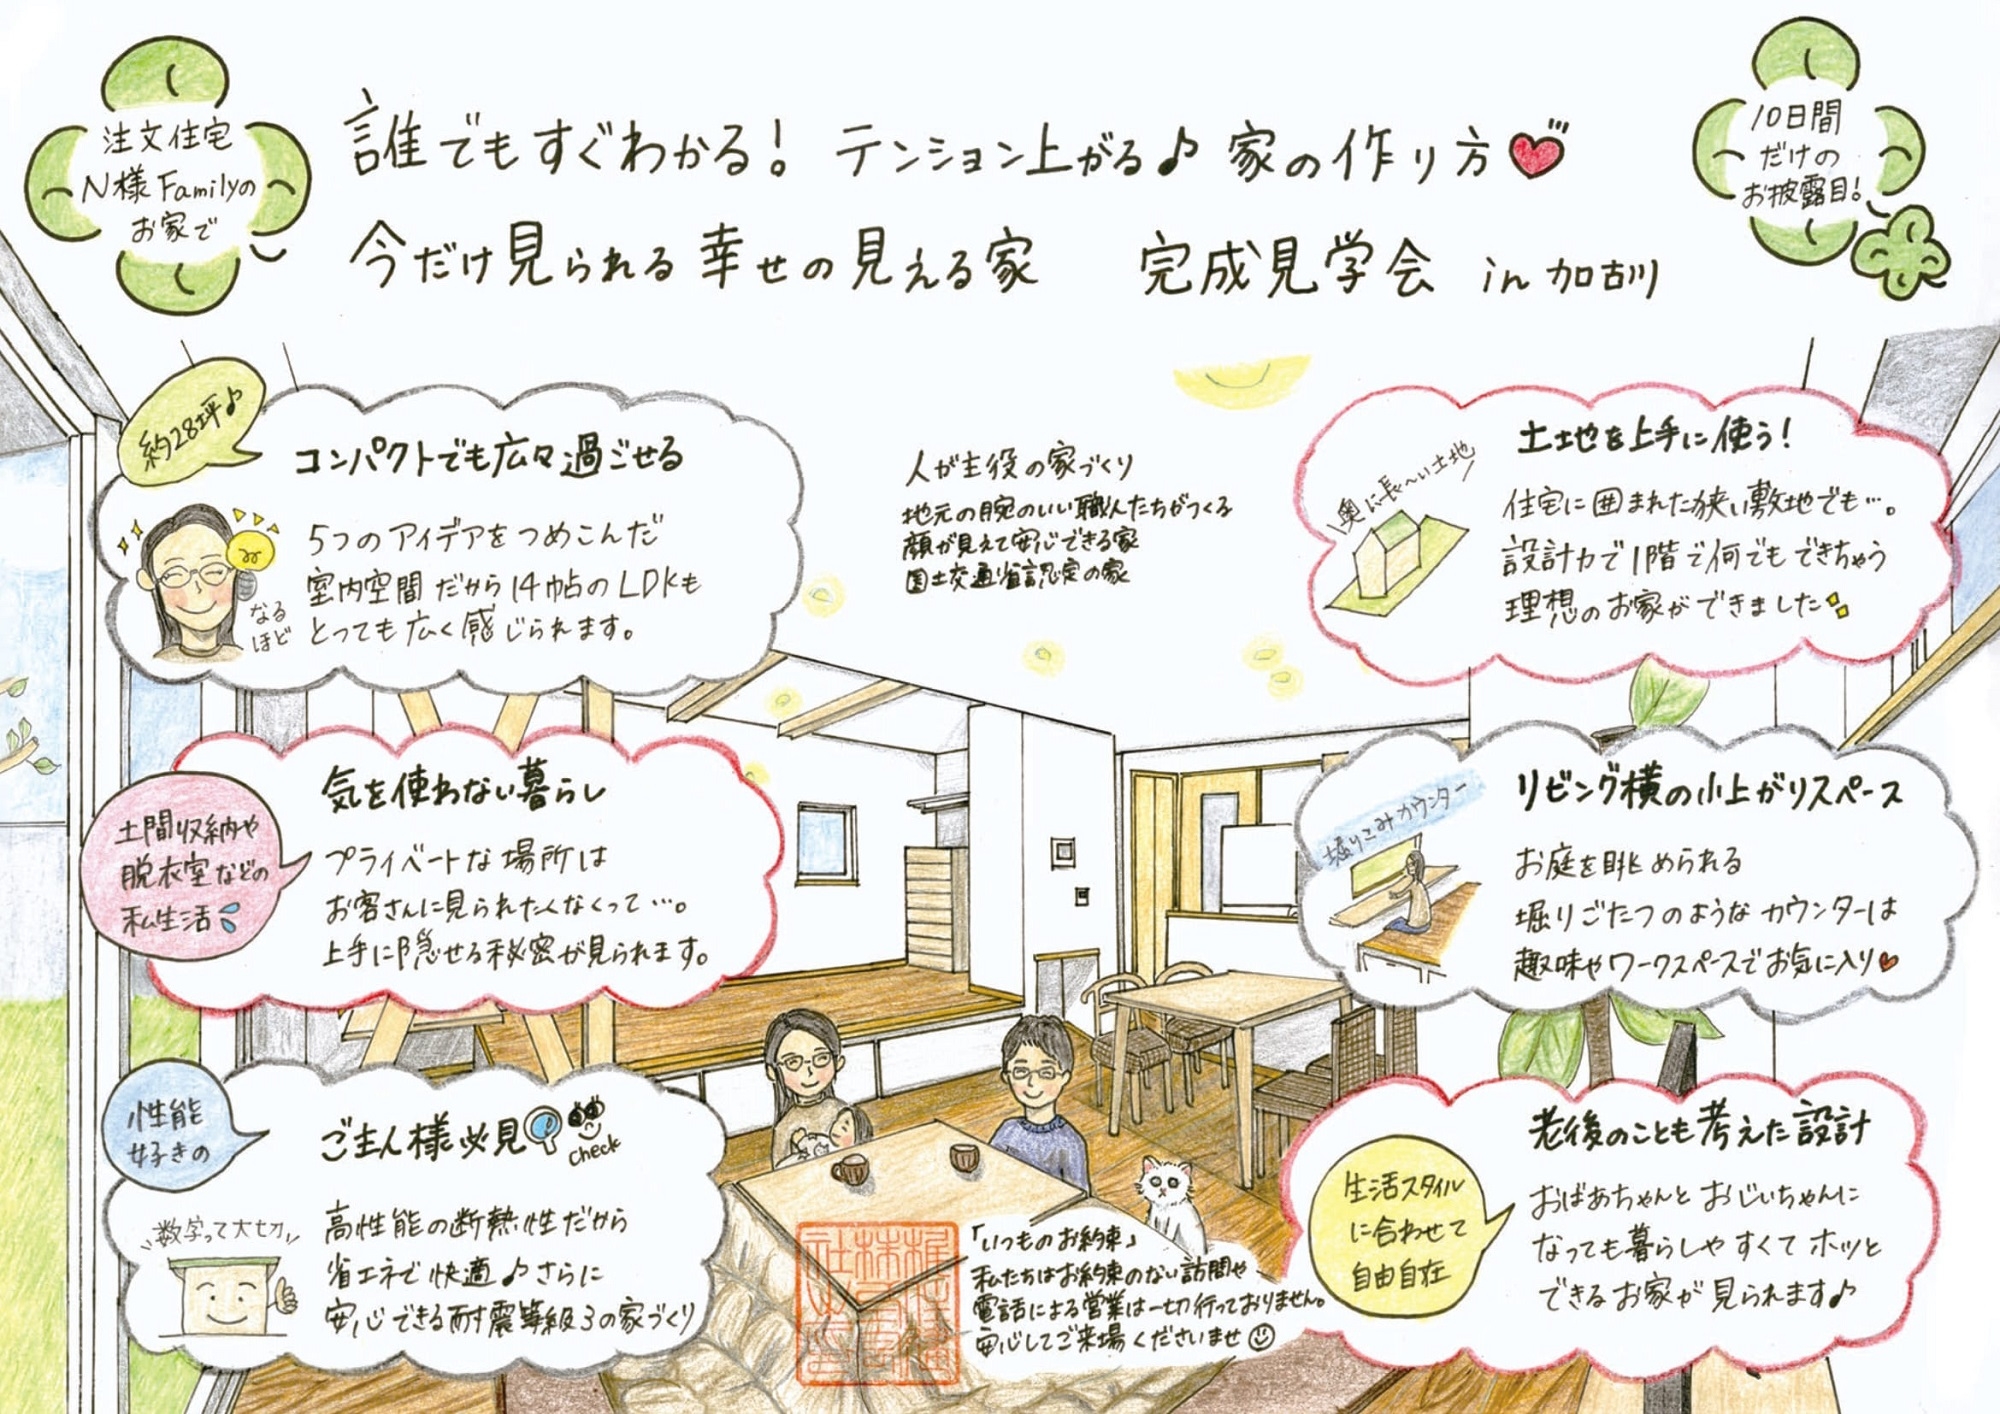 注文住宅
N様Familyの
お家で
誰でもすぐわかる! テンション上がる♪ 家の作り方
今だけ見られる幸せの見える家 完成見学会 in 加古川
10日間
だけの
お披露目!
約28坪♪
コンパクトでも広々過ごせる
5つのアイデアをつめこんだ
室内空間だから14帖のLDKも
とっても広く感じられます。
なる
ほど
人が主役の家づくり
地元の腕のいい職人たちがつくる
顔が見えて安心できる家
国土交通省認定の家
土地を上手に使う!
奥に長〜い土地
住宅に囲まれた狭い敷地でも…。
設計力で1階で何でもできちゃう
理想のお家ができました
土間収納や
脱衣室などの
私生活
気を使わない暮らし
プライベートな場所は
お客さんに見られたくなくって…。
上手に隠せる秘密が見られます。
リビング横の小上がりスペース
堀りこみカウンター
お庭を眺められる
堀りごたつのようなカウンターは
趣味やワークスペースでお気に入り
性能
好きの
ご主人様必見
check
数字って大切
高性能の断熱性だから
省エネで快適♪さらに
安心できる耐震等級3の家づくり
「いつものお約束」
私たちはお約束のない訪問や
電話による営業は一切行っておりません。
安心してご来場くださいませ
老後のことも考えた設計
生活スタイル
に合わせて
自由自在
おばあちゃんとおじいちゃんに
なっても暮らしやすくてホッと
できるお家が見られます♪